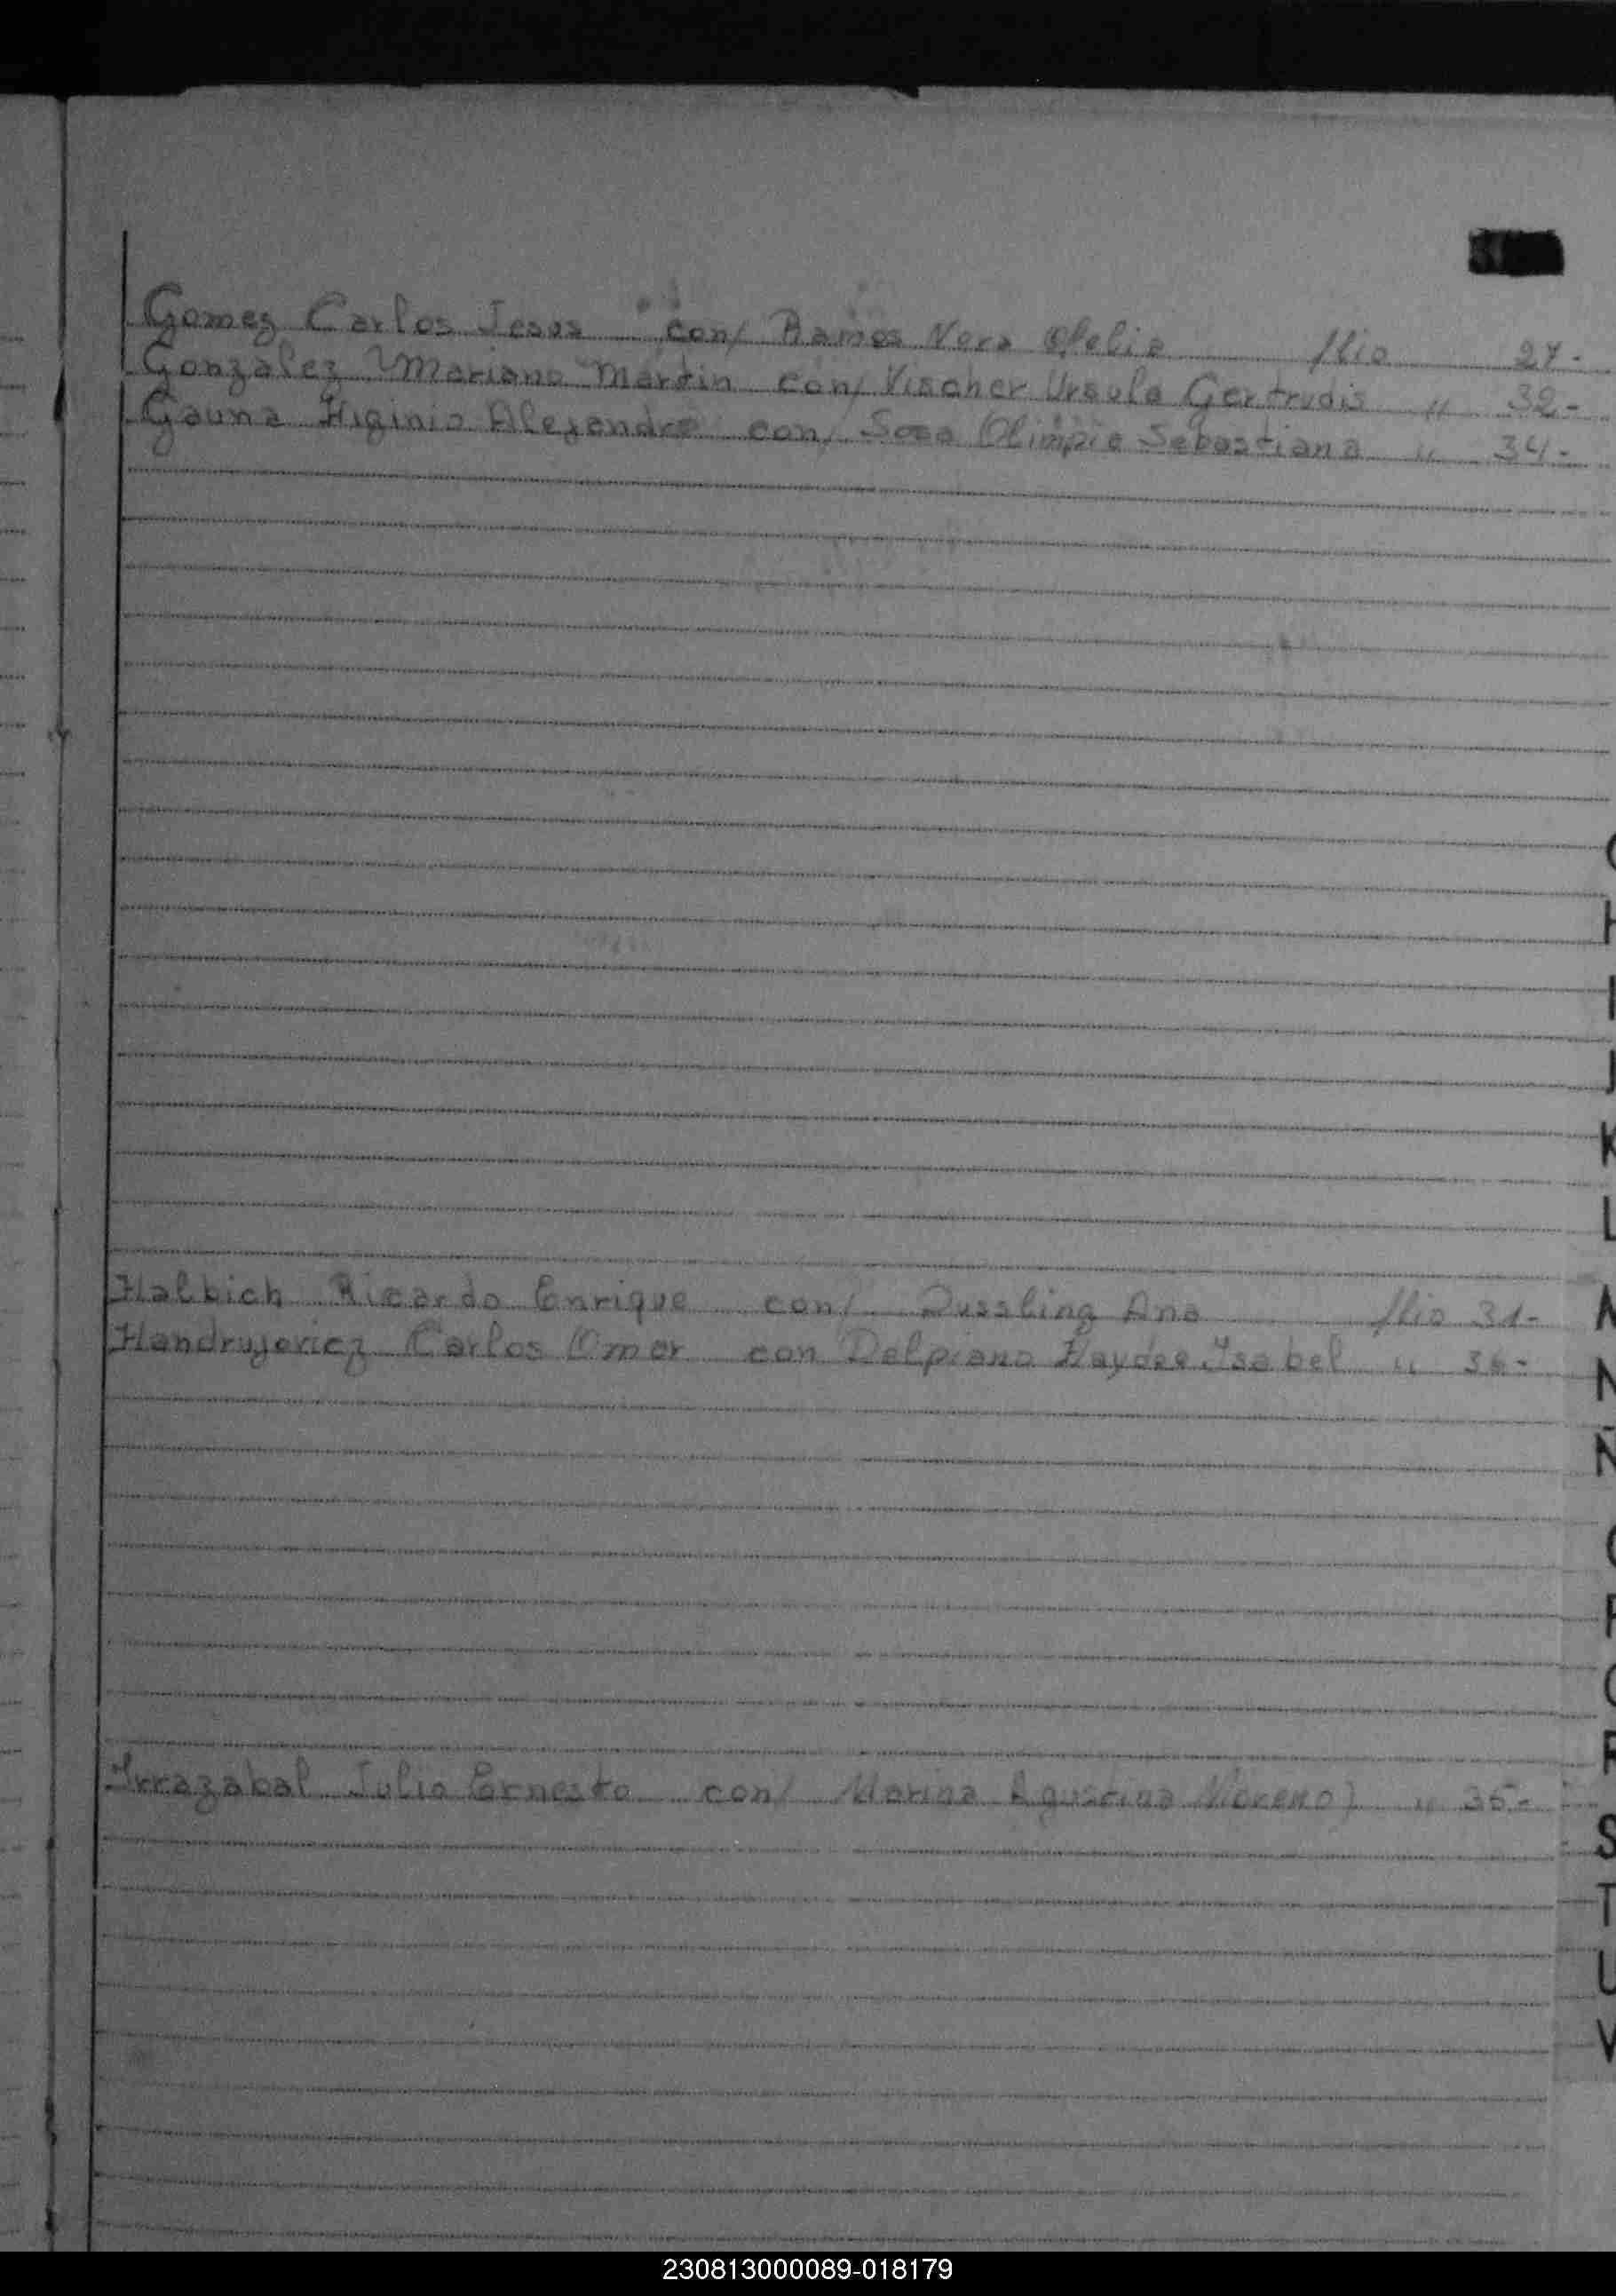 Gomez Carlos Jesus con/ Ramos Nora Ofelia flio 27-
Gonzalez Mariano Martin con/ Vischer Ursula Gertrudis " 32-
Gauna Higinio Alejandro con/ Sosa Olimpia Sebastiana " 34-
H
I
J
K
L
Halbich Ricardo Enrique con/ Dussling Ana flio 31-
Handrujovicz Carlos Omar con Delpiano Haydee Ysabel " 36-
N
Ñ
Yrrazabal Julio Ernesto con/ Marina Agustina Moreno) " 35-
S
T
U
V
230813000089-018179